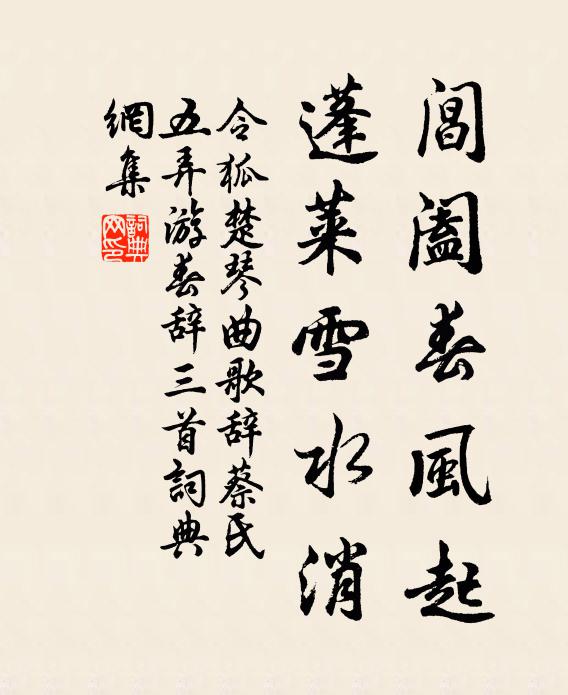 閶闔春風起
蓬萊雪水消
令狐楚琴曲歌辞蔡氏
五弄游春辞三首詞典
網集
詞典
网印